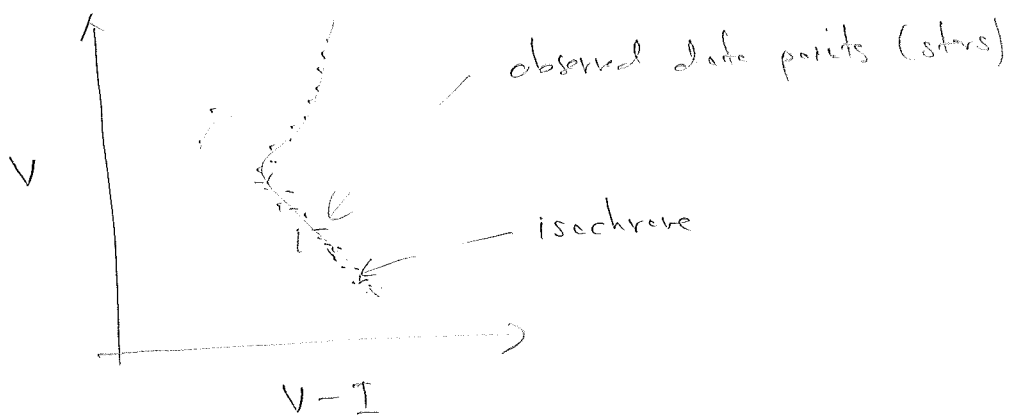 observed data points (stars)
V
isochrone
V - I